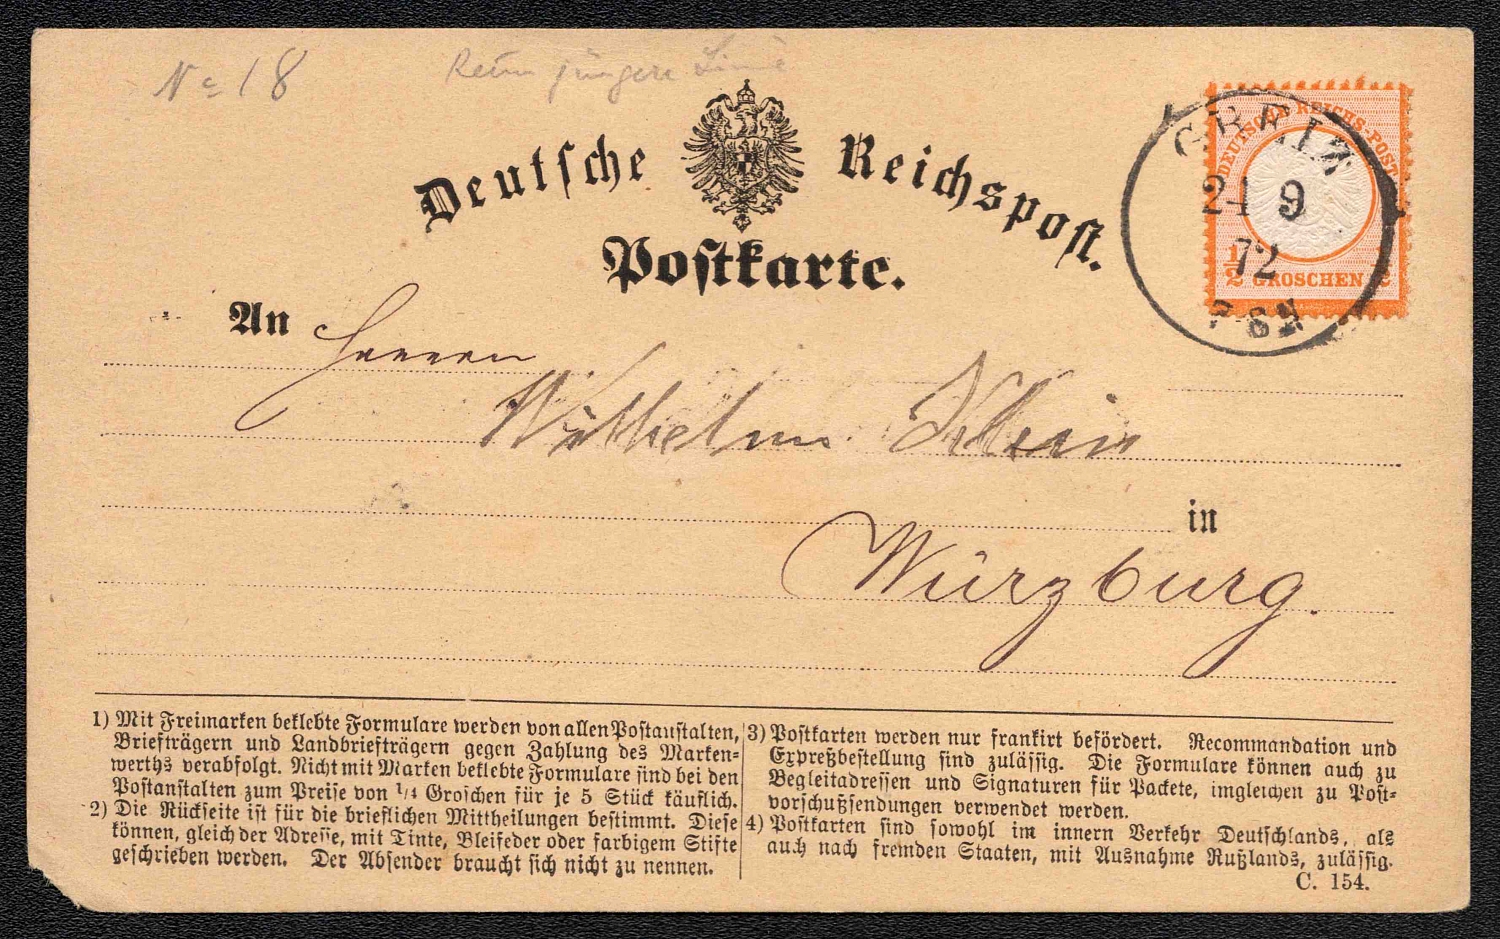 No 18
Deutsche Reichspost.
Postkarte.
DEUTSCHE REICHS-POST
1/2 GROSCHEN 1/2
GREIZ
24 9
72
An Herrn
Wilhelm Klein
in
Würzburg.
1) Mit Freimarken beklebte Formulare werden von allen Postanstalten,
Briefträgern und Landbriefträgern gegen Zahlung des Marken-
werths verabfolgt. Nicht mit Marken beklebte Formulare sind bei den
Postanstalten zum Preise von 1/4 Groschen für je 5 Stück käuflich.
2) Die Rückseite ist für die brieflichen Mittheilungen bestimmt. Diese
können, gleich der Adresse, mit Tinte, Bleifeder oder farbigem Stifte
geschrieben werden. Der Absender braucht sich nicht zu nennen.
3) Postkarten werden nur frankirt befördert. Recommandation und
Expreßbestellung sind zulässig. Die Formulare können auch zu
Begleitadressen und Signaturen für Packete, imgleichen zu Post-
vorschußsendungen verwendet werden.
4) Postkarten sind sowohl im innern Verkehr Deutschlands, als
auch nach fremden Staaten, mit Ausnahme Rußlands, zulässig.
C. 154.